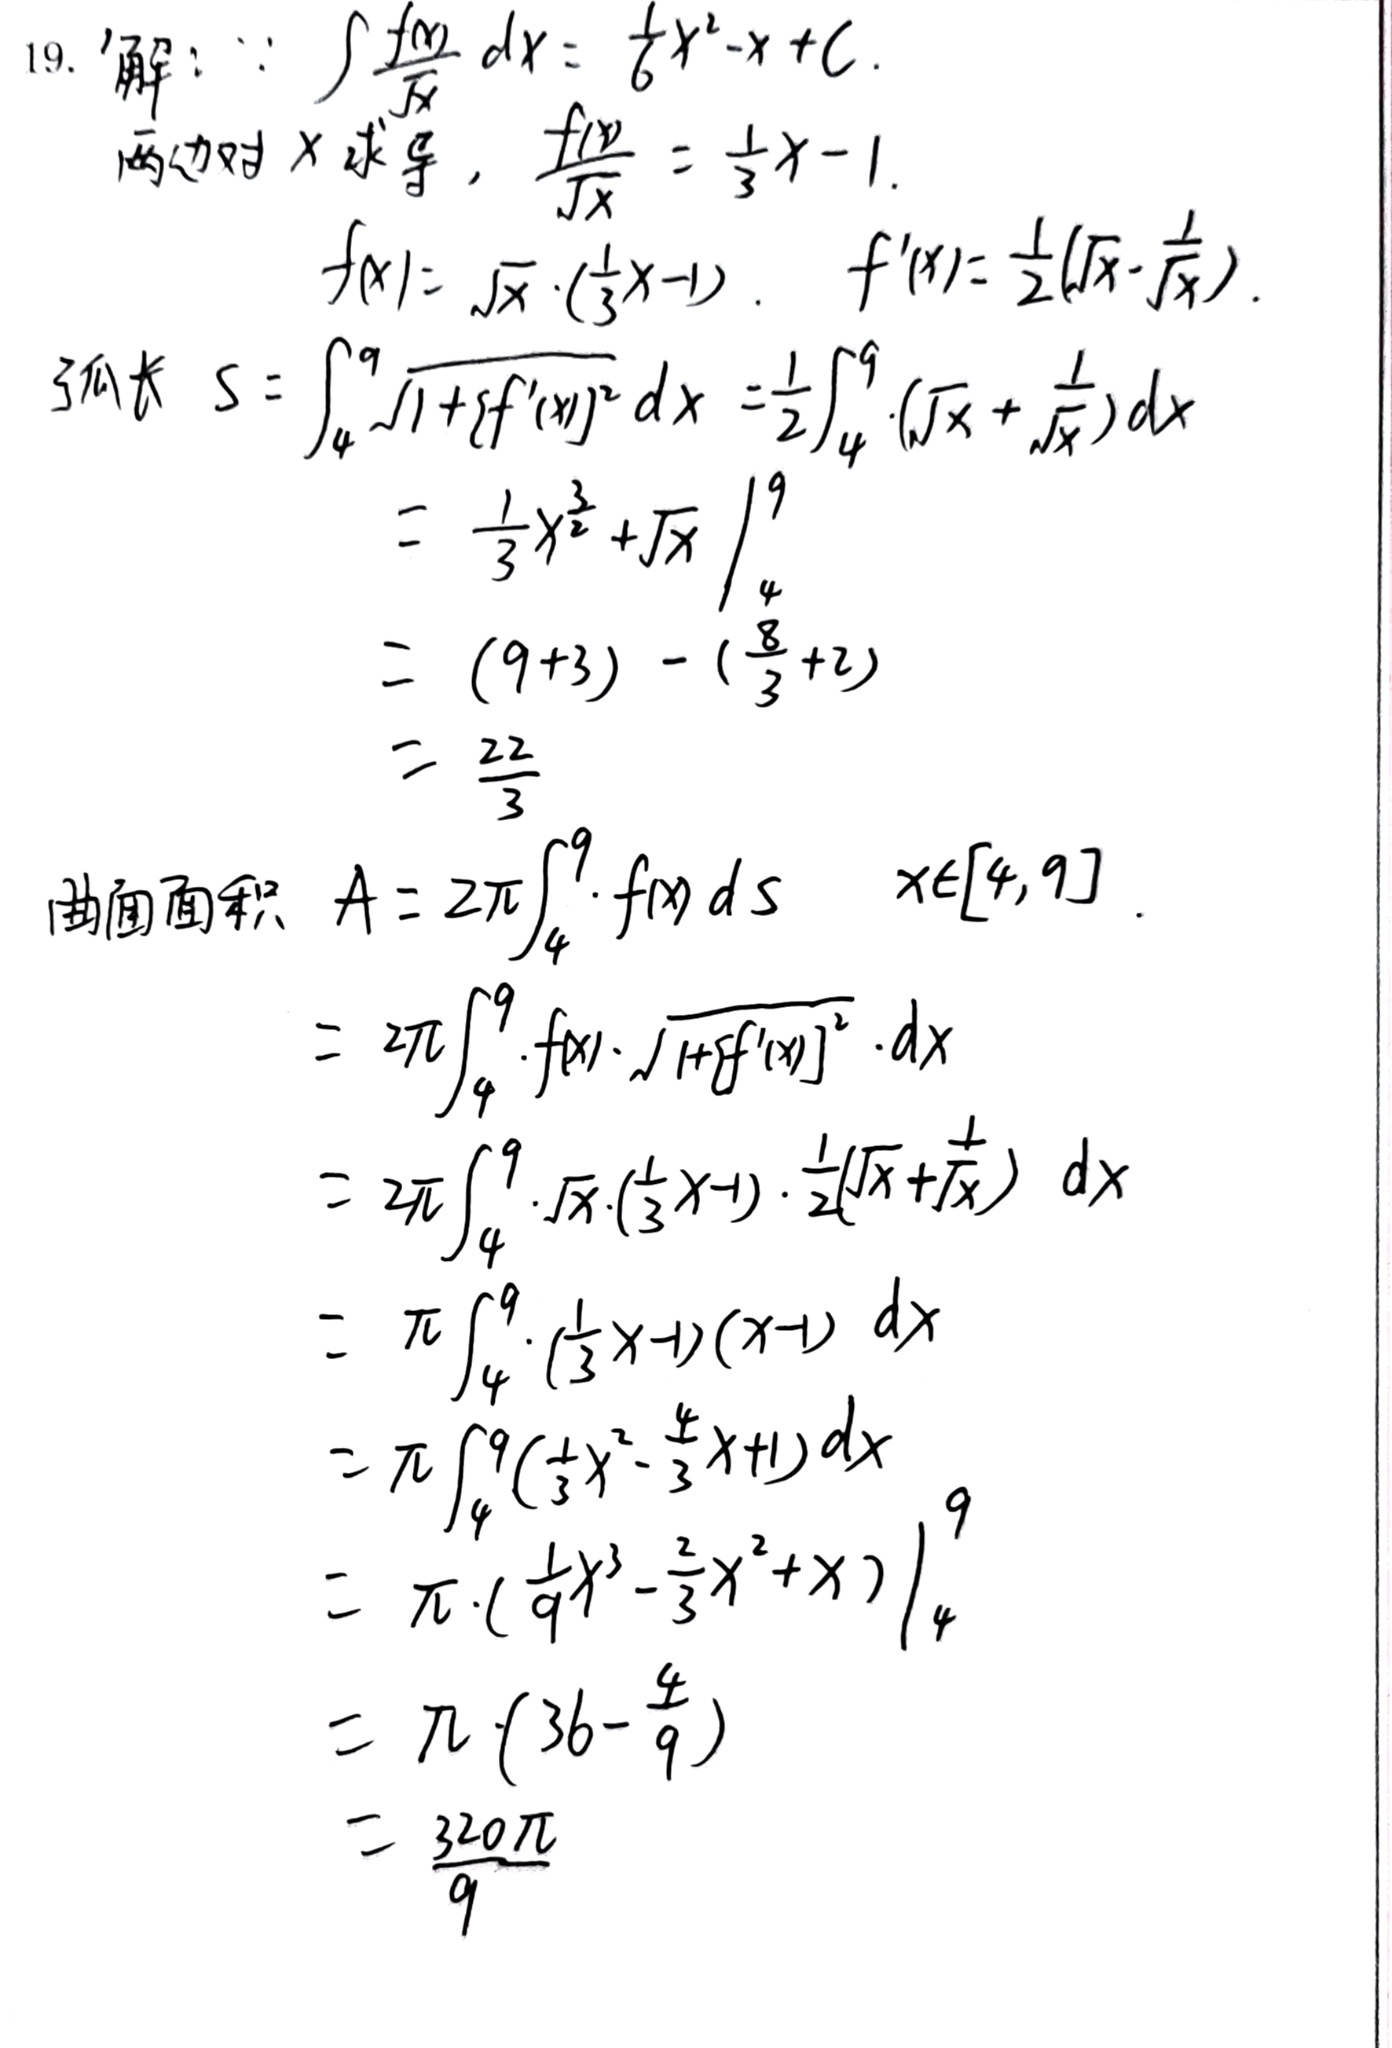 19. 解：∵ ∫ f(x)/√x dx = 1/6 x² - x + C.
两边对 x 求导, f(x)/√x = 1/3 x - 1.
f(x) = √x · (1/3 x - 1). f'(x) = 1/2 (√x - 1/√x).
弧长 S = ∫₄⁹ √(1+[f'(x)]²) dx = 1/2 ∫₄⁹ · (√x + 1/√x) dx
= 1/3 x^(3/2) + √x |₄⁹
= (9+3) - (8/3 + 2)
= 22/3
曲面面积 A = 2π ∫₄⁹ · f(x) ds x∈[4,9].
= 2π ∫₄⁹ · f(x) · √(1+[f'(x)]²) · dx
= 2π ∫₄⁹ · √x · (1/3 x - 1) · 1/2 (√x + 1/√x) dx
= π ∫₄⁹ · (1/3 x - 1)(x - 1) dx
= π ∫₄⁹ (1/3 x² - 4/3 x + 1) dx
= π · (1/9 x³ - 2/3 x² + x) |₄⁹
= π · (36 - 4/9)
= 320π/9